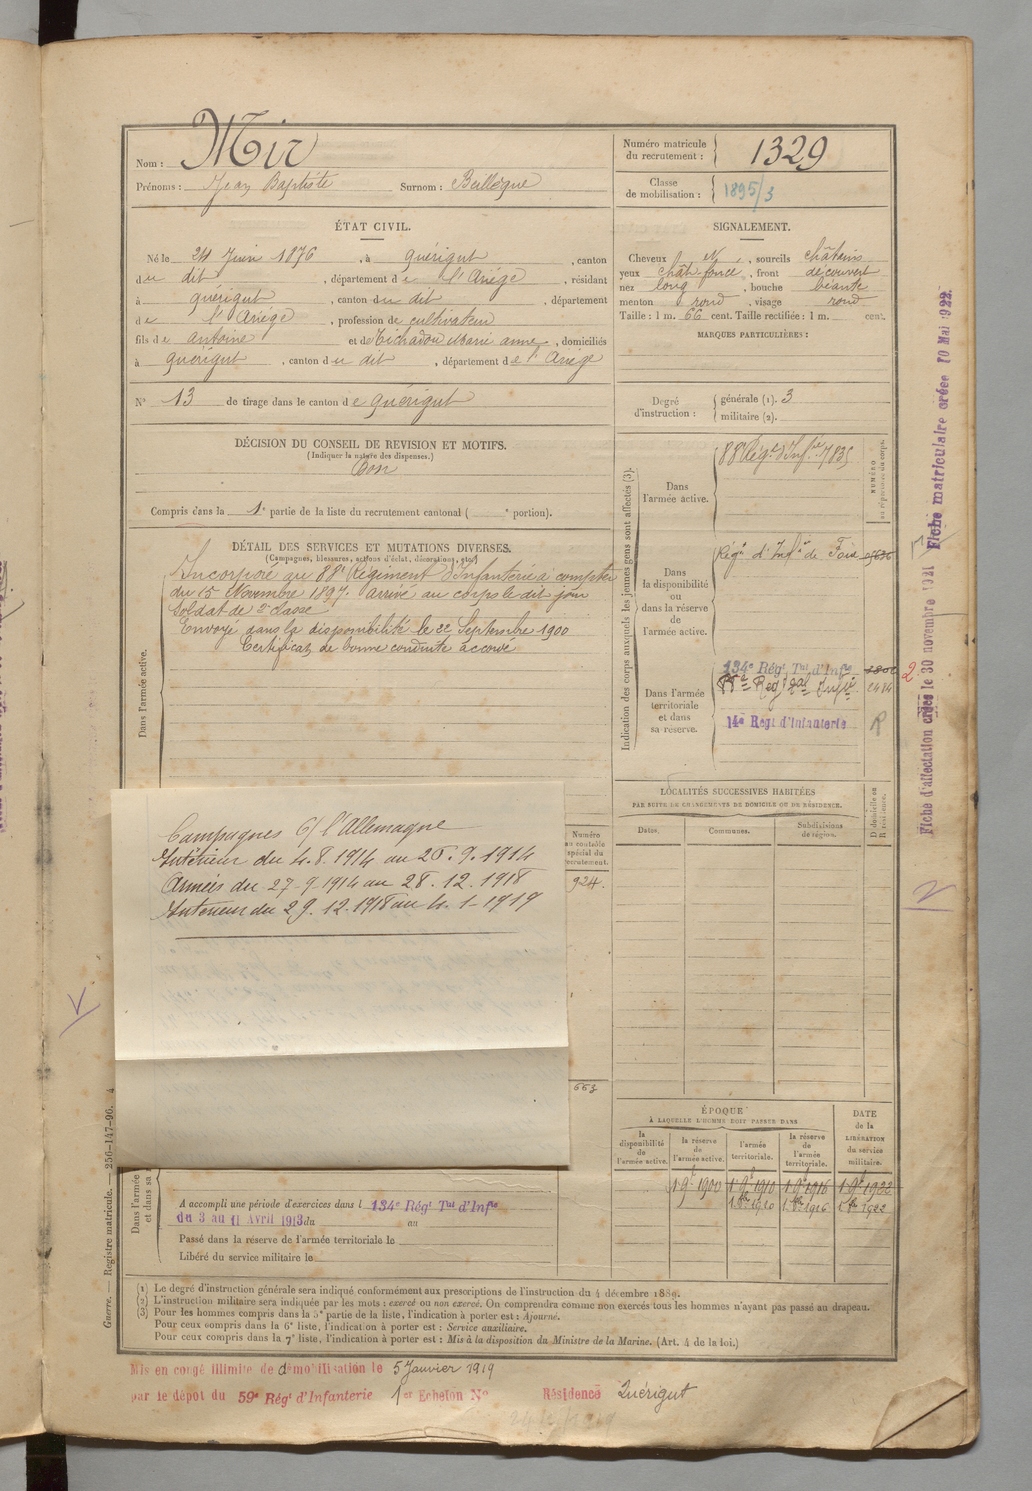 Nom : Mir
Prénoms : Jean Baptiste Surnom : Bullogue
Numéro matricule du recrutement : 1329
Classe de mobilisation : 1895/3
ÉTAT CIVIL.
Né le 24 Juin 1876, à Quérigut, canton
du dit, département de l'Ariége, résidant
à Quérigut, canton du dit, département
de l'Ariége, profession de cultivateur
fils de Antoine et de Tichadou Marie anne, domiciliés
à Quérigut, canton du dit, département de l'Ariége
N° 13 de tirage dans le canton de Quérigut
SIGNALEMENT.
Cheveux et, sourcils châtains
yeux chât. foncé, front découvert
nez long, bouche béante
menton rond, visage rond
Taille : 1 m. 66 cent. Taille rectifiée : 1 m. cent.
MARQUES PARTICULIÈRES :
Degré d'instruction : générale (1). 3
militaire (2).
DÉCISION DU CONSEIL DE REVISION ET MOTIFS.
(Indiquer la nature des dispenses.)
Bon
Compris dans la 1e partie de la liste du recrutement cantonal ( e portion).
DÉTAIL DES SERVICES ET MUTATIONS DIVERSES.
(Campagnes, blessures, actions d'éclat, décorations, etc.)
Dans l'armée active.
Incorporé au 88e Régiment d'Infanterie à compter
du 15 Novembre 1897. arrivé au corps le dit jour
Soldat de 2e classe
Envoyé dans la disponibilité le 22 Septembre 1900
Certificat de bonne conduite accordé
Campagnes C/ l'Allemagne
Intérieur du 4.8.1914 au 26.9.1914
Armées du 27-9-1914 au 28.12.1918
Interieur du 29.12.1918 au 4-1-1919
Numéro au contrôle spécial du recrutement.
924.
663
Indication des corps auxquels les jeunes gens sont affectés (3).
NUMÉRO au répertoire du corps.
Dans l'armée active.
88e Régt d'Infie 7835
Dans la disponibilité ou dans la réserve de l'armée active.
Régt d'Infie de Foix
Dans l'armée territoriale et dans sa réserve.
134e Régt Tal d'Infie
14e Régt d'Infanterie
R
2
LOCALITÉS SUCCESSIVES HABITÉES
PAR SUITE DE CHANGEMENTS DE DOMICILE OU DE RÉSIDENCE.
Dates. Communes. Subdivisions de région. D domicile ou R résidence.
ÉPOQUE
À LAQUELLE L'HOMME DOIT PASSER DANS
DATE de la LIBÉRATION du service militaire.
la disponibilité de l'armée active. la réserve de l'armée active. l'armée territoriale. la réserve de l'armée territoriale.
1 9e 1900 1 9e 1910 1 9e 1916 1 9e 1922
1 8e 1910 1 8e 1916 1 8e 1922
Dans l'armée et dans sa
A accompli une période d'exercices dans l 134e Régt Tal d'Infie
du 3 au 11 Avril 1913 du au
Passé dans la réserve de l'armée territoriale le
Libéré du service militaire le
(1) Le degré d'instruction générale sera indiqué conformément aux prescriptions de l'instruction du 4 décembre 1889.
(2) L'instruction militaire sera indiquée par les mots : exercé ou non exercé. On comprendra comme non exercés tous les hommes n'ayant pas passé au drapeau.
(3) Pour les hommes compris dans la 5e partie de la liste, l'indication à porter est : Ajourné.
Pour ceux compris dans la 6e liste, l'indication à porter est : Service auxiliaire.
Pour ceux compris dans la 7e liste, l'indication à porter est : Mis à la disposition du Ministre de la Marine. (Art. 4 de la loi.)
Mis en congé illimité de démobilisation le 5 Janvier 1919
par le dépôt du 59e Régt d'Infanterie 1er Echelon N° Résidence Quérigut
Guerre. — Registre matricule. — 256-147-96. 4
Fiche d'affectation créée le 30 novembre 1921
Fiche matriculaire créée 10 Mai 1922.